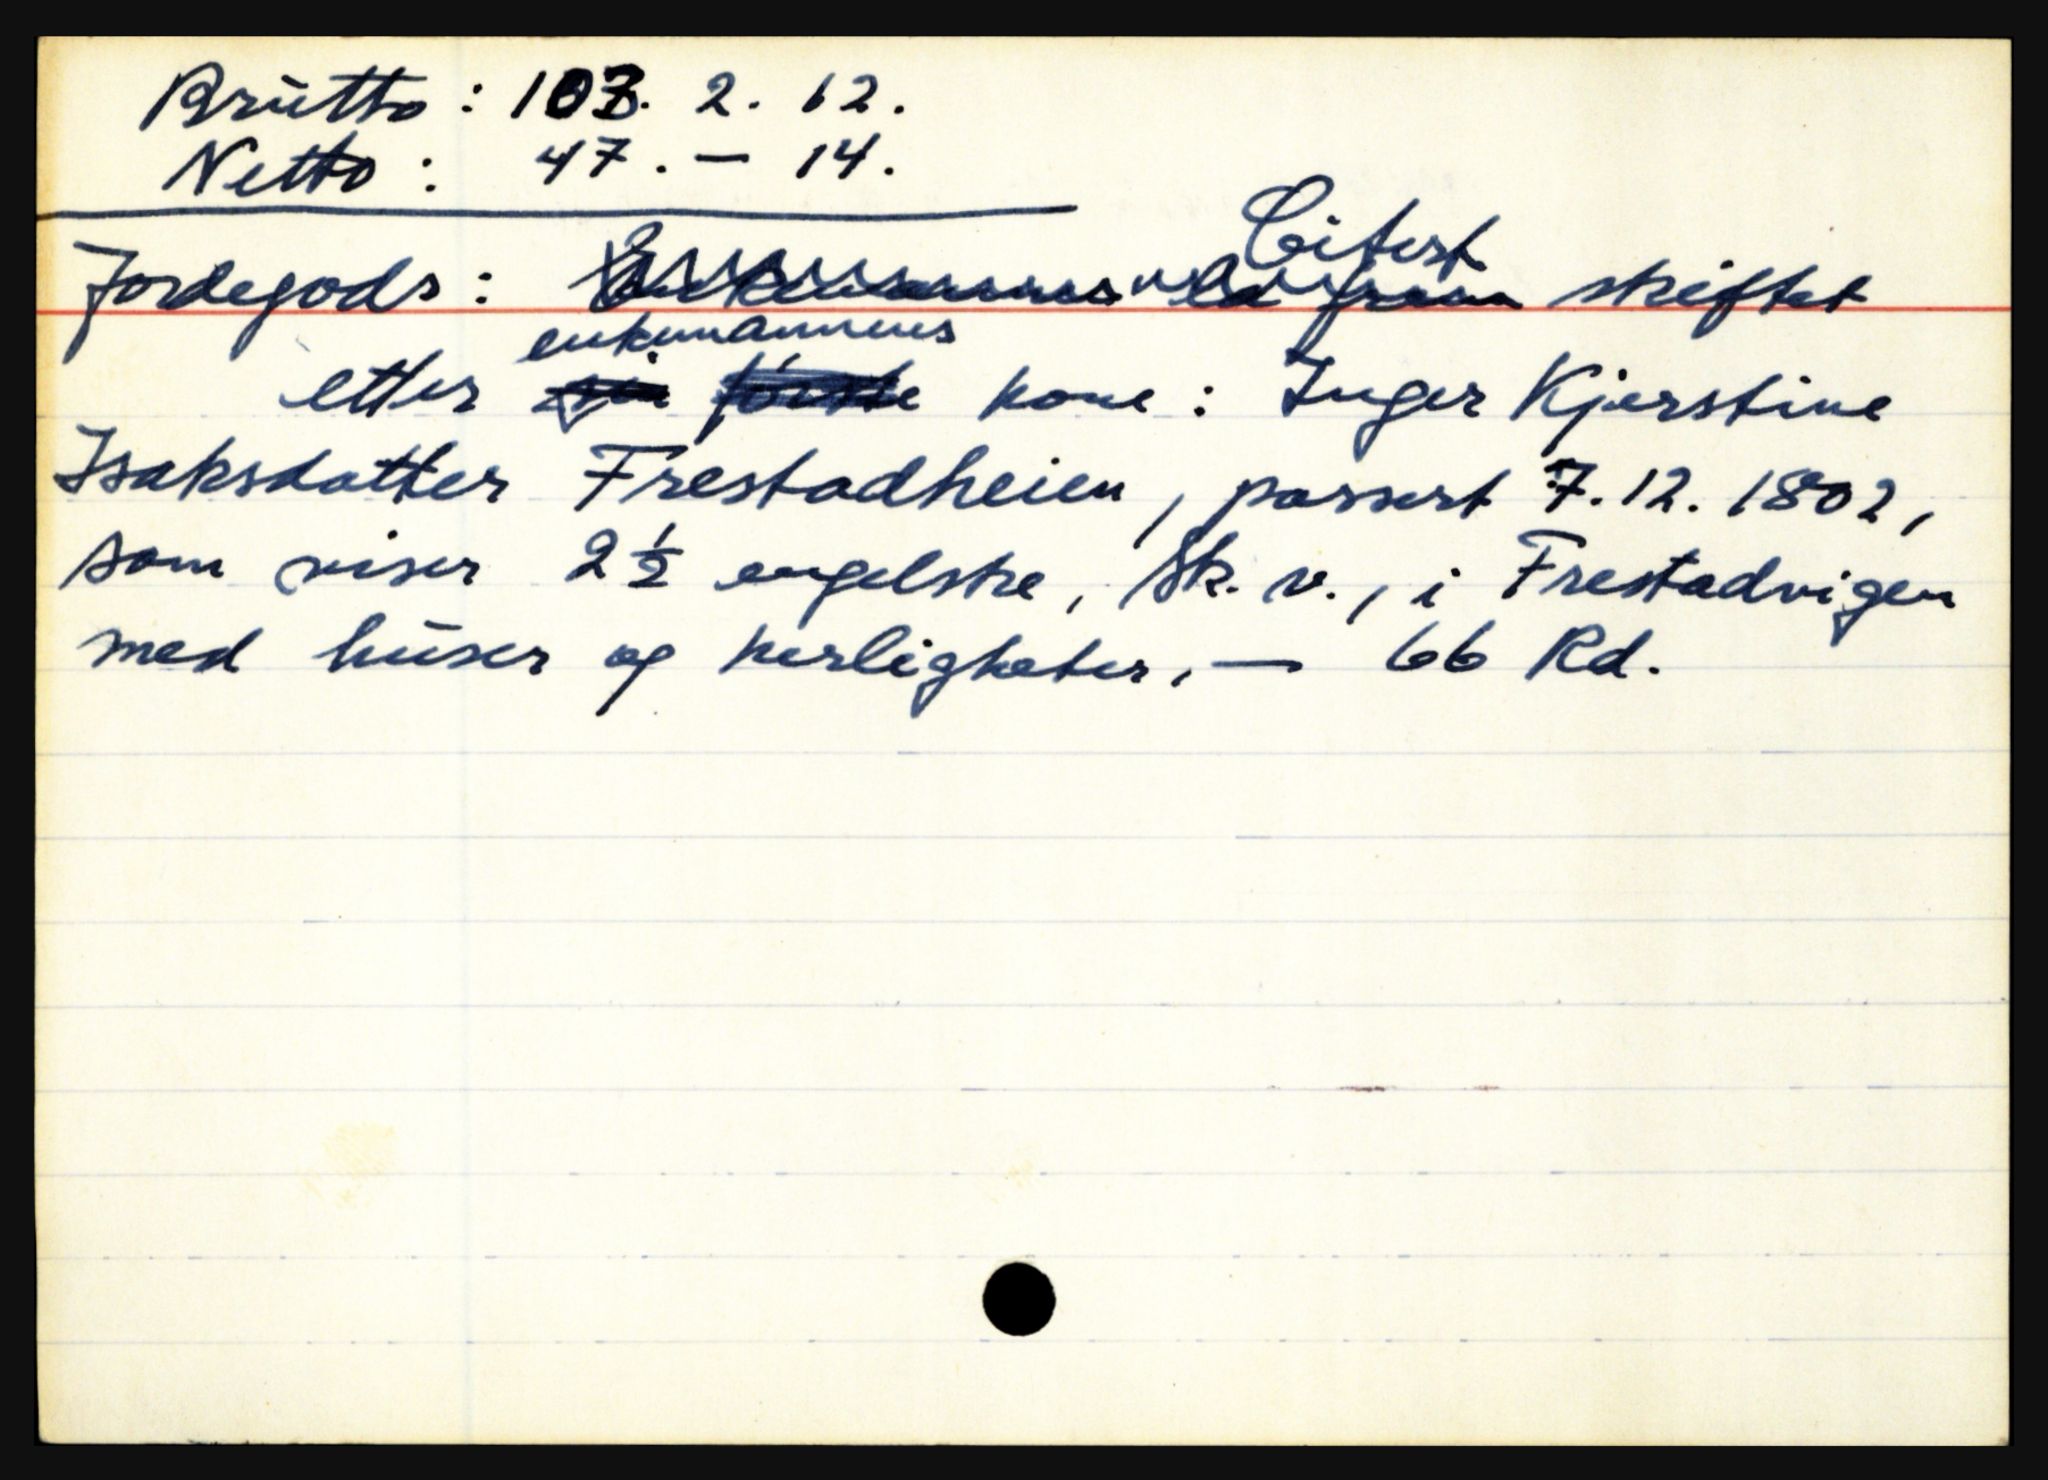 Brutto: 103. 2. 12.
Netto: 47. — 14.
Citert
Jordegods: Enkemannen la frem skiftet
enkemannens
etter sin første kone: Inger Kjerstine
Isaksdatter Frestadheien, passert 7.12. 1802,
som viser 2½ engelske, Sk. v., i Frestadvigen
med huser og herligheter, — 66 Rd.